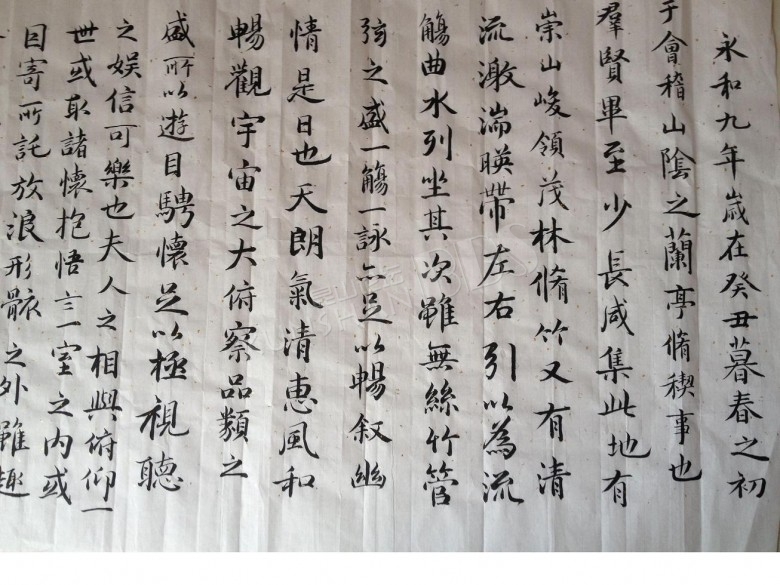 永和九年歲在癸丑暮春之初
于會稽山陰之蘭亭脩稧事也
羣賢畢至少長咸集此地有
崇山峻領茂林脩竹又有清
流激湍暎帶左右引以為流
觴曲水列坐其次雖無絲竹管
弦之盛一觴一詠亦足以暢叙幽
情是日也天朗氣清惠風和
暢觀宇宙之大俯察品類之
盛所以遊目騁懷足以極視聽
之娛信可樂也夫人之相與俯仰一
世或取諸懷抱悟言一室之內或
因寄所託放浪形骸之外雖趣